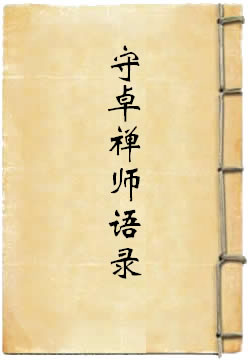 守卓禅师语录